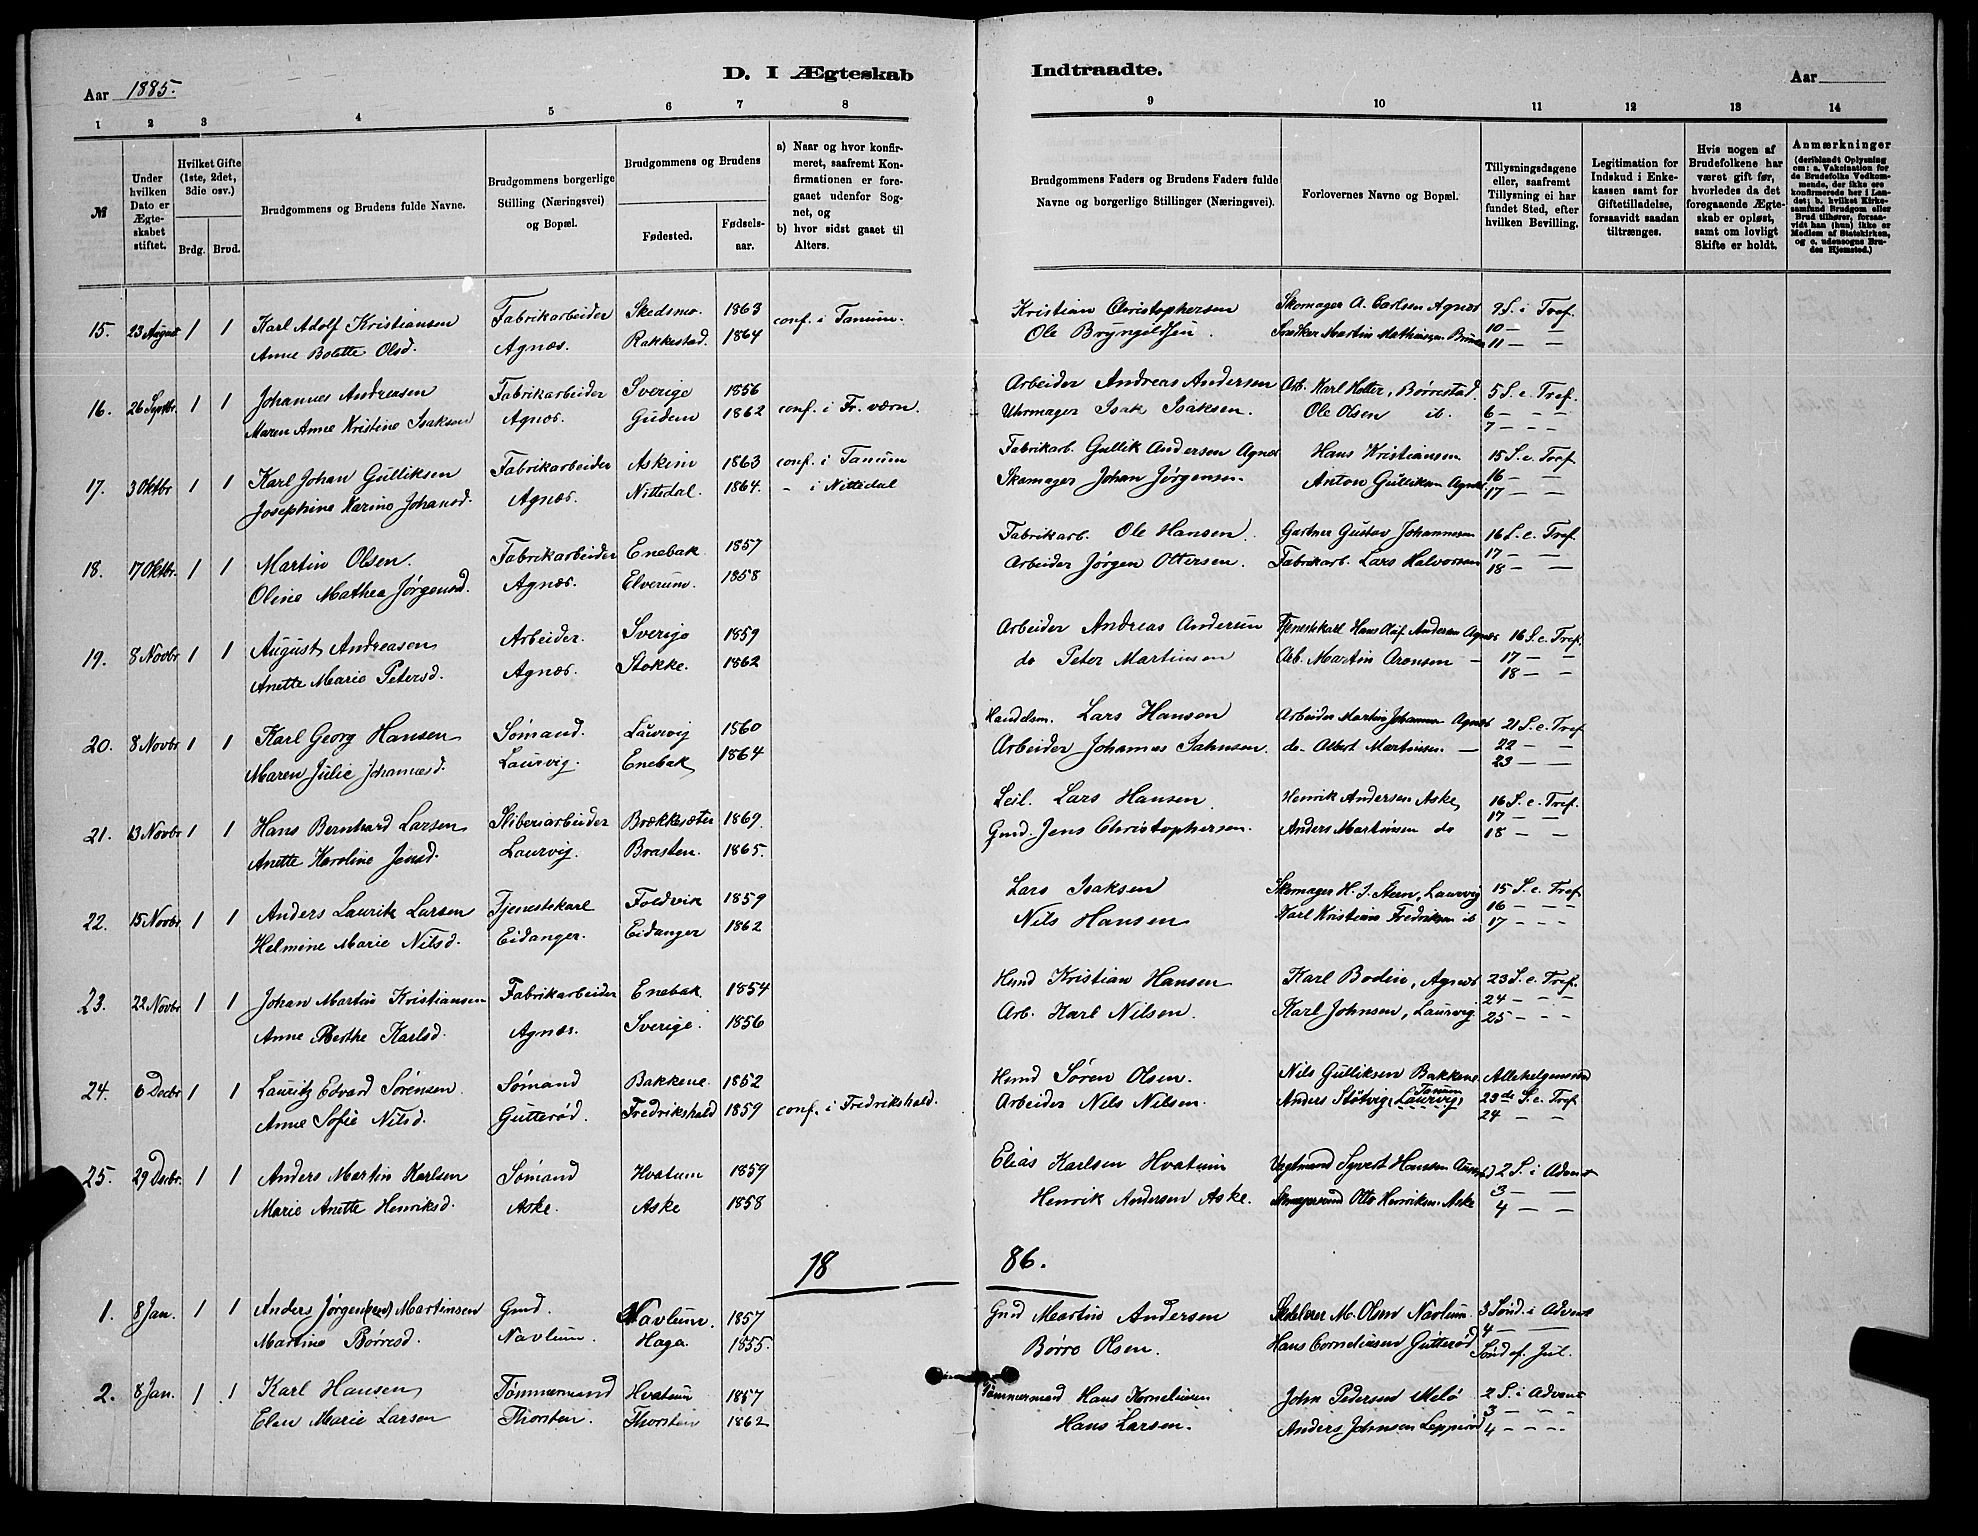 Aar 1885.
D. I Ægteskab
Indtraadte.
Aar
1 2 3 4 5 6 7 8 9 10 11 12 13 14
№
Under hvilken Dato er Ægteskabet stiftet.
Hvilket Gifte (1ste, 2det, 3die osv.)
Brdg. Brud.
Brudgommens og Brudens fulde Navne.
Brudgommens borgerlige Stilling (Næringsvei) og Bopæl.
Brudgommens og Brudens
Fødested. Fødselsaar.
a) Naar og hvor konfirmeret, saafremt Konfirmationen er foregaaet udenfor Sognet, og
b) hvor sidst gaaet til Alters.
Brudgommens Faders og Brudens Faders fulde Navne og borgerlige Stillinger (Næringsvei).
Forlovernes Navne og Bopæl.
Tillysningsdagene eller, saafremt Tillysning ei har fundet Sted, efter hvilken Bevilling.
Legitimation for Indskud i Enkekassen samt for Giftetilladelse, forsaavidt saadan tiltrænges.
Hvis nogen af Brudefolkene har været gift før, hvorledes da det foregaaende Ægteskab er opløst, samt om lovligt Skifte er holdt.
Anmærkninger (deriblandt Oplysning om: a. Vakcination for de Brudefolks Vedkommende, der ikke ere konfirmerede her i Landet; b. hvilket Kirkesamfund Brudgom eller Brud tilhører, forsaavidt han (hun) ikke er Medlem af Statskirken, og c. udensogns Brudes Hjemsted.)
15. 23 August 1 1 Karl Adolf Kristiansen Fabrikarbeider Skedsmo. 1863 conf. i Tanum. Kristian Christophersen Skomager A. Carlsen Agnæs 9 S. i Tref.
Anne Bolette Olsd. Agnæs. Rakkestad. 1864 Ole Bryngildsen Snedker Martin Mathiasen 10 — —
11 — —
16. 26 Septbr. 1 1 Johannes Andreasen Fabrikarbeider Sverige 1856 conf. i Fr.værn. Arbeider Andreas Andersen Arb. Karl Holter, Børrestad. 5 S. e. Tref.
Maren Anne Kristine Isaksen Agnæs. Gudem 1862 Uhrmager Isak Isaksen. Ole Olsen ib. 6 — - -
7 — - -
17. 3 Oktbr 1 1 Karl Johan Gulliksen Fabrikarbeider Askim 1863 conf. i Tanum Fabrikarb. Gullik Andersen Agnæs Hans Kristiansen 15 S. e. Tref.
Josephine Karine Johansd. Agnæs. Nittedal. 1864. - i Nittedal Skomager Johan Jørgensen. Anton Gulliksen Agnæs 16 — -
17 — -
18. 17 Oktbr. 1 1 Martin Olsen. Fabrikarbeider Enebak. 1857 Fabrikarb. Ole Hansen. Gartner Gustav Johannesen 16 S. e. Tref.
Oline Mathea Jørgensd. Agnæs. Elverum. 1858 Arbeider Jørgen Ottersen. Fabrikarb. Lars Halvorsen 17 — —
18 — —
19. 8 Novbr 1 1 August Andreasen Arbeider. Sverige 1859 Arbeider Andreas Andersen Tjenestekarl Hans Olaf Andersen Agnæs 16 S. e. Tref.
Anette Marie Petersd. Agnæs. Stokke. 1862 do Peter Martinsen Arb. Martin Aronsen — 17 — —
18 — —
20. 8 Novbr 1 1 Karl Georg Hansen Sømand. Laurvig 1860 Handelsm. Lars Hansen Arbeider Martin Johannsen Agnæs 21 S. e. Tref
Maren Julie Johannesd. Laurvig. Enebak 1864 Arbeider Johannes Jahnsen. do. Albert Martinsen — 22 — —
23 — —
21. 13 Novbr 1 1 Hans Bernhard Larsen Sliberiarbeider Brækkesæter 1869. Leil. Lars Hansen Henrik Andersen Aske 16 S. e. Tref.
Anette Karoline Jensd. Laurvig. Brasten. 1865. Gmd. Jens Christophersen. Anders Martinsen do 17 — —
18 — —
22. 15 Novbr 1 1 Anders Laurits Larsen Tjenestekarl Foldvik 1859 Lars Isaksen Skomager H. J. Stern, Laurvig 15 S. e. Tref.
Helmine Marie Nilsd. Eidanger. Eidanger 1862 Nils Hansen Karl Kristian Fredriksen ib 16 — - -
17 - - -
23. 22 Novbr 1 1 Johan Martin Kristiansen Fabrikarbeider Enebak. 1854 Hmd Kristian Hansen Karl Bodin, Agnæs 23 S. e. Tref.
Anne Berthe Karlsd. Agnæs. Sverige. 1856 Arb. Karl Nilsen. Karl Johnsen, Laurvig. 24 — - -
25 - - -
24. 6 Decbr 1 1 Lauritz Edvard Sørensen. Sømand Bakkene. 1852 Hmd Søren Olsen. Nils Gulliksen Bakkene Allehelgensd
Anne Sofie Nilsd. Gutterød. Fredrikshald 1859 conf. i Fredrikshald. Arbeider Nils Nilsen. Anders Støtvig, Laurvig Tanum 23de S. e. Tref
24 — —
25. 29 Decbr. 1 1 Anders Martin Karlsen Sømand Hvatum 1859 Elias Karlsen Hvatum Vagtmand Syvert Hansen 2 S. i Advent
Marie Anette Henriksd. Aske. Aske 1858 Henrik Andersen Aske. Otto Henriksen Aske 3 — —
4 — —
18 — 86.
1. 8 Jan. 1 1 Anders Jørgen(sen) Martinsen Gmd. Navlum. 1857 Gmd Martin Andersen M. Olsen Navlum. 3 Sønd. i Advent
Martine Børresd. Navlum. Haga. 1855. Børre Olsen. Hans Corneliusen Gutterød 4 — —
Sønd ef. Jul.
2. 8 Jan. 1 1 Karl Hansen Tømmermand Hvatum 1857 Tømmermand Hans Korneliusen John Pedersen Melø 2 S. i Advent
Elen Marie Larsen Thorsten. Thorsten 1862 Hans Larsen. Anders Johnsen Lepperød 3 — - -
4 - - -